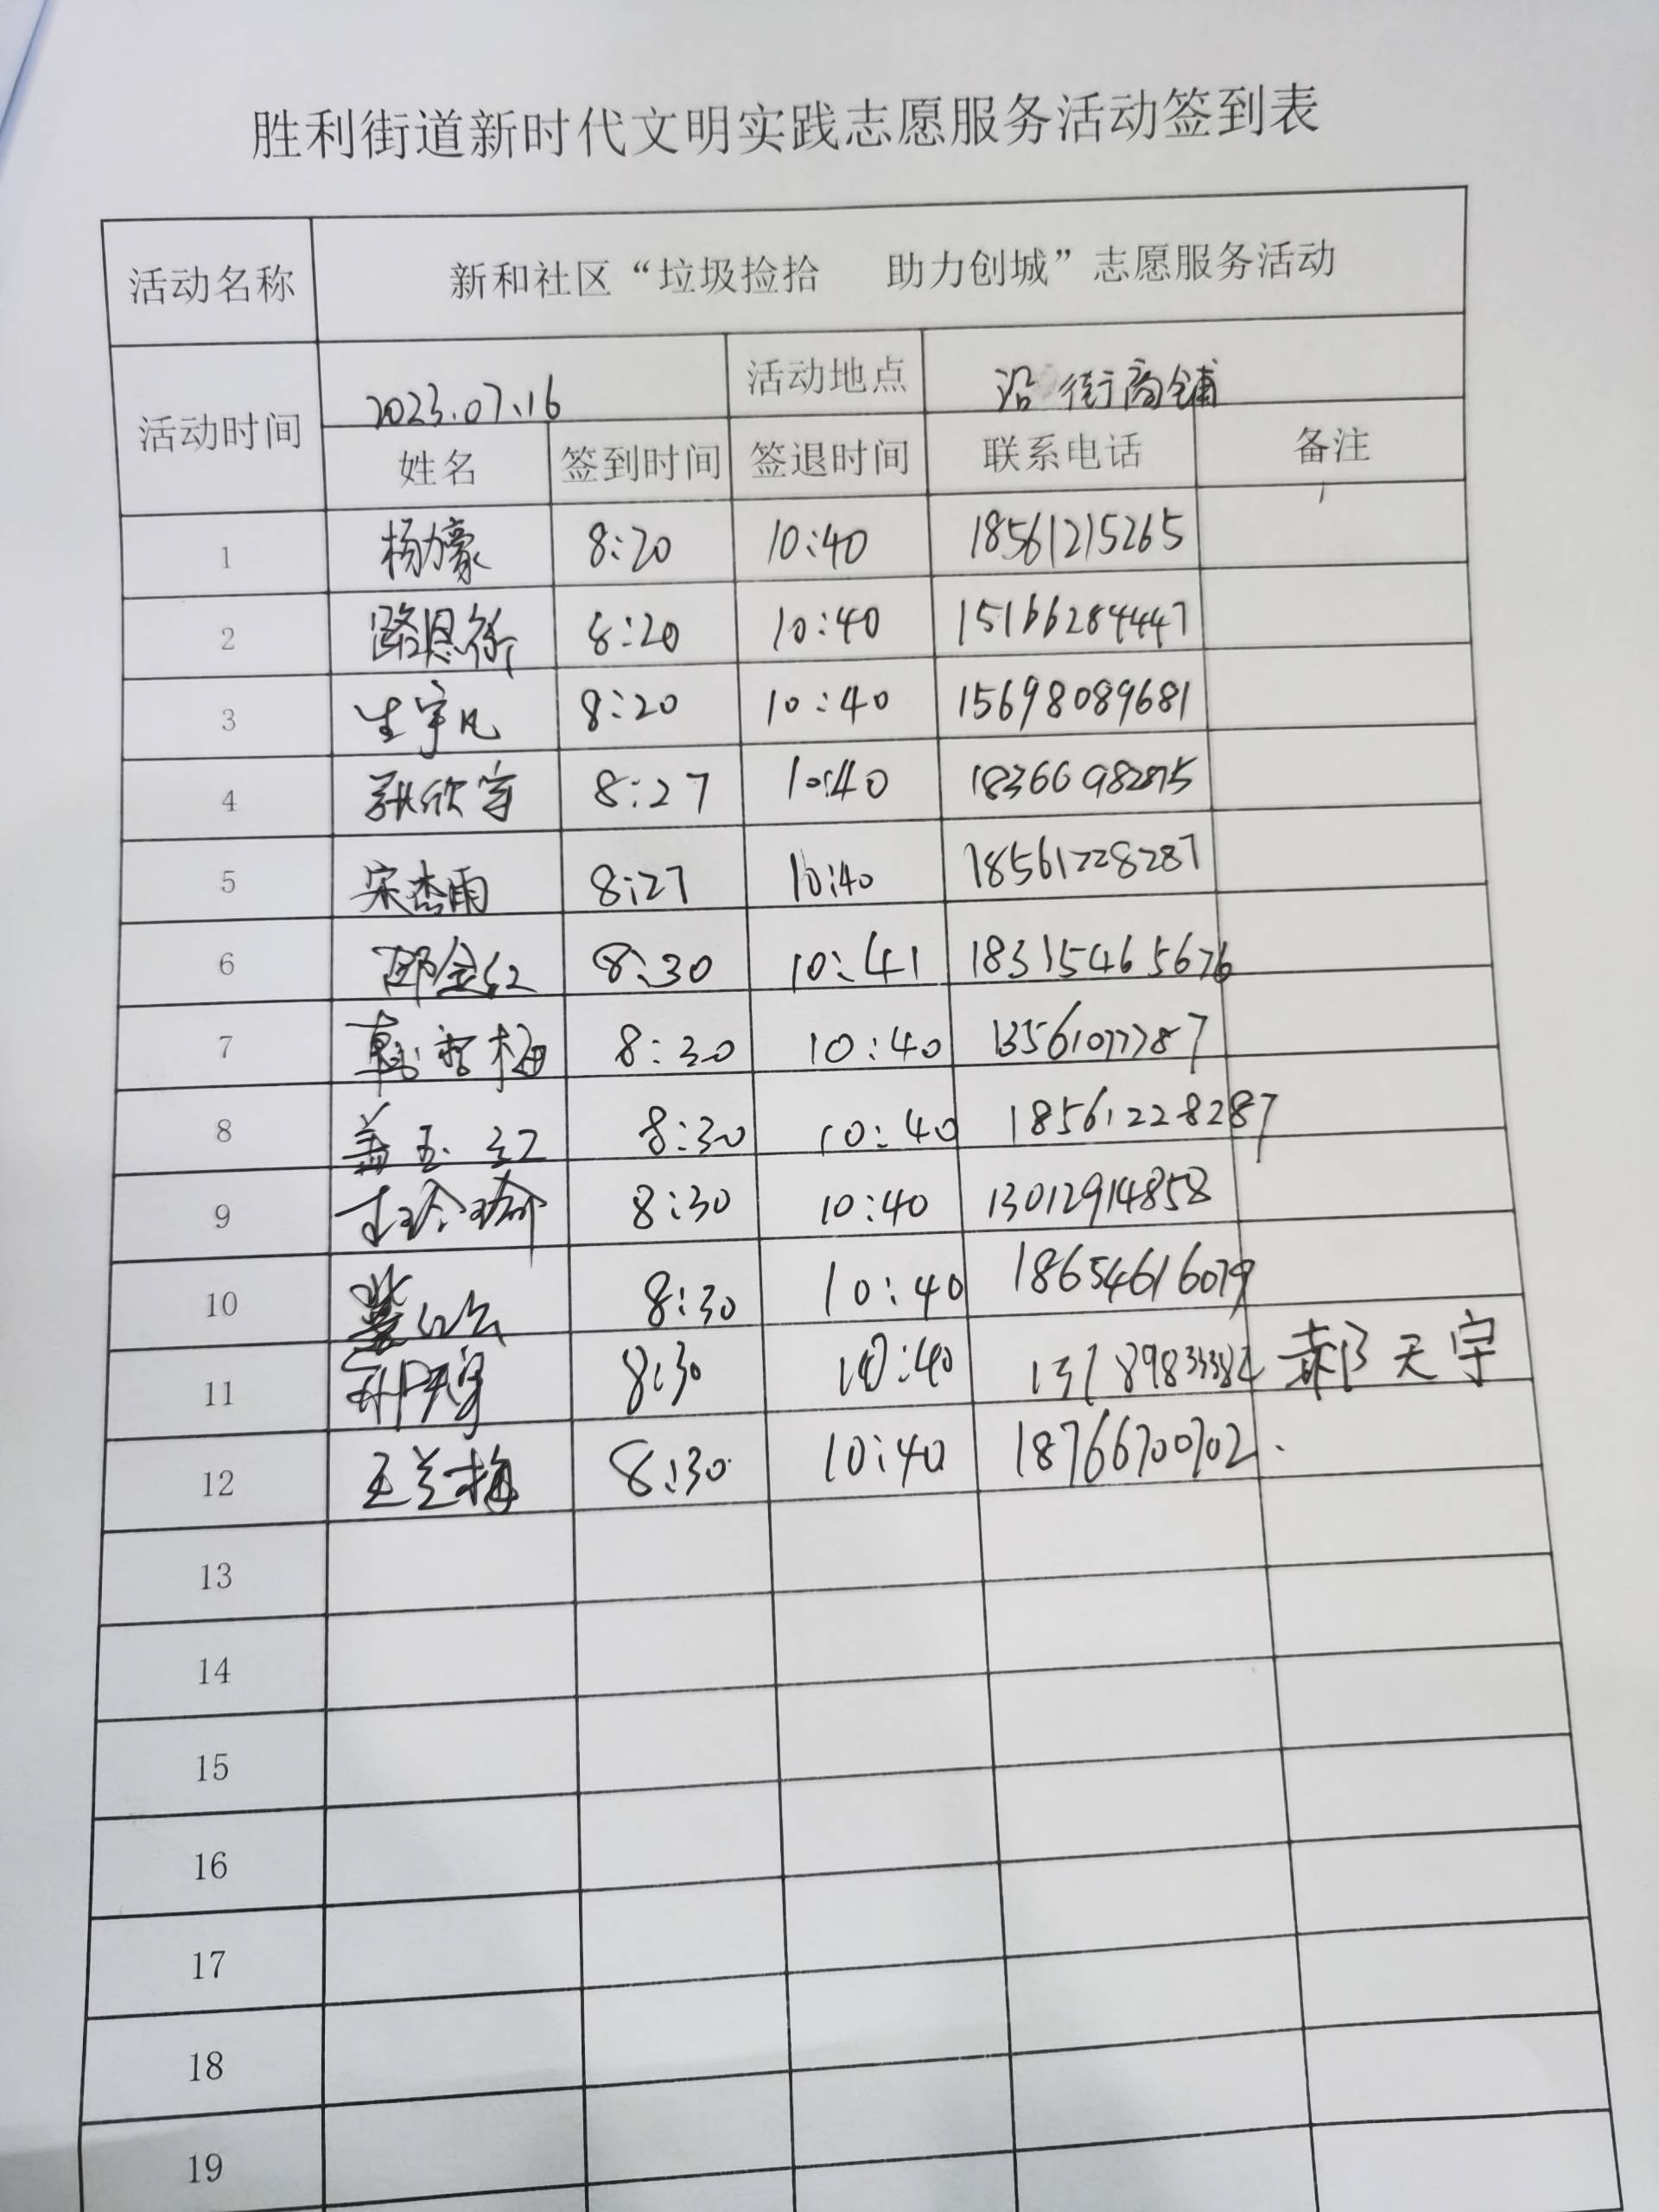 胜利街道新时代文明实践志愿服务活动签到表
活动名称 新和社区“垃圾捡拾 助力创城”志愿服务活动
活动时间 2023.07.16 活动地点 沿街商铺
姓名 签到时间 签退时间 联系电话 备注
1 杨濠 8:20 10:40 18561215265
2 路恩衔 8:20 10:40 15166284447
3 生宇凡 8:20 10:40 15698089681
4 8:27 10:40
5 宋杰雨 8:27 10:40 18561228287
6 邵金红 8:30 10:41 18315465676
7 8:30 10:40 13561077787
8 盖玉红 8:30 10:40 18561228287
9 8:30 10:40 13012914858
10 8:30 10:40 18654616079
11 8:30 10:40 郝天宇
12 王兰梅 8:30 10:40 18766700702.
13
14
15
16
17
18
19